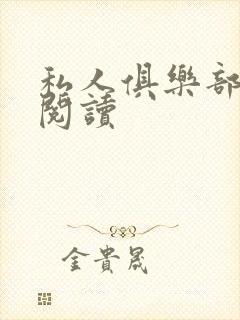 私人俱樂部
閱讀
金貴晟